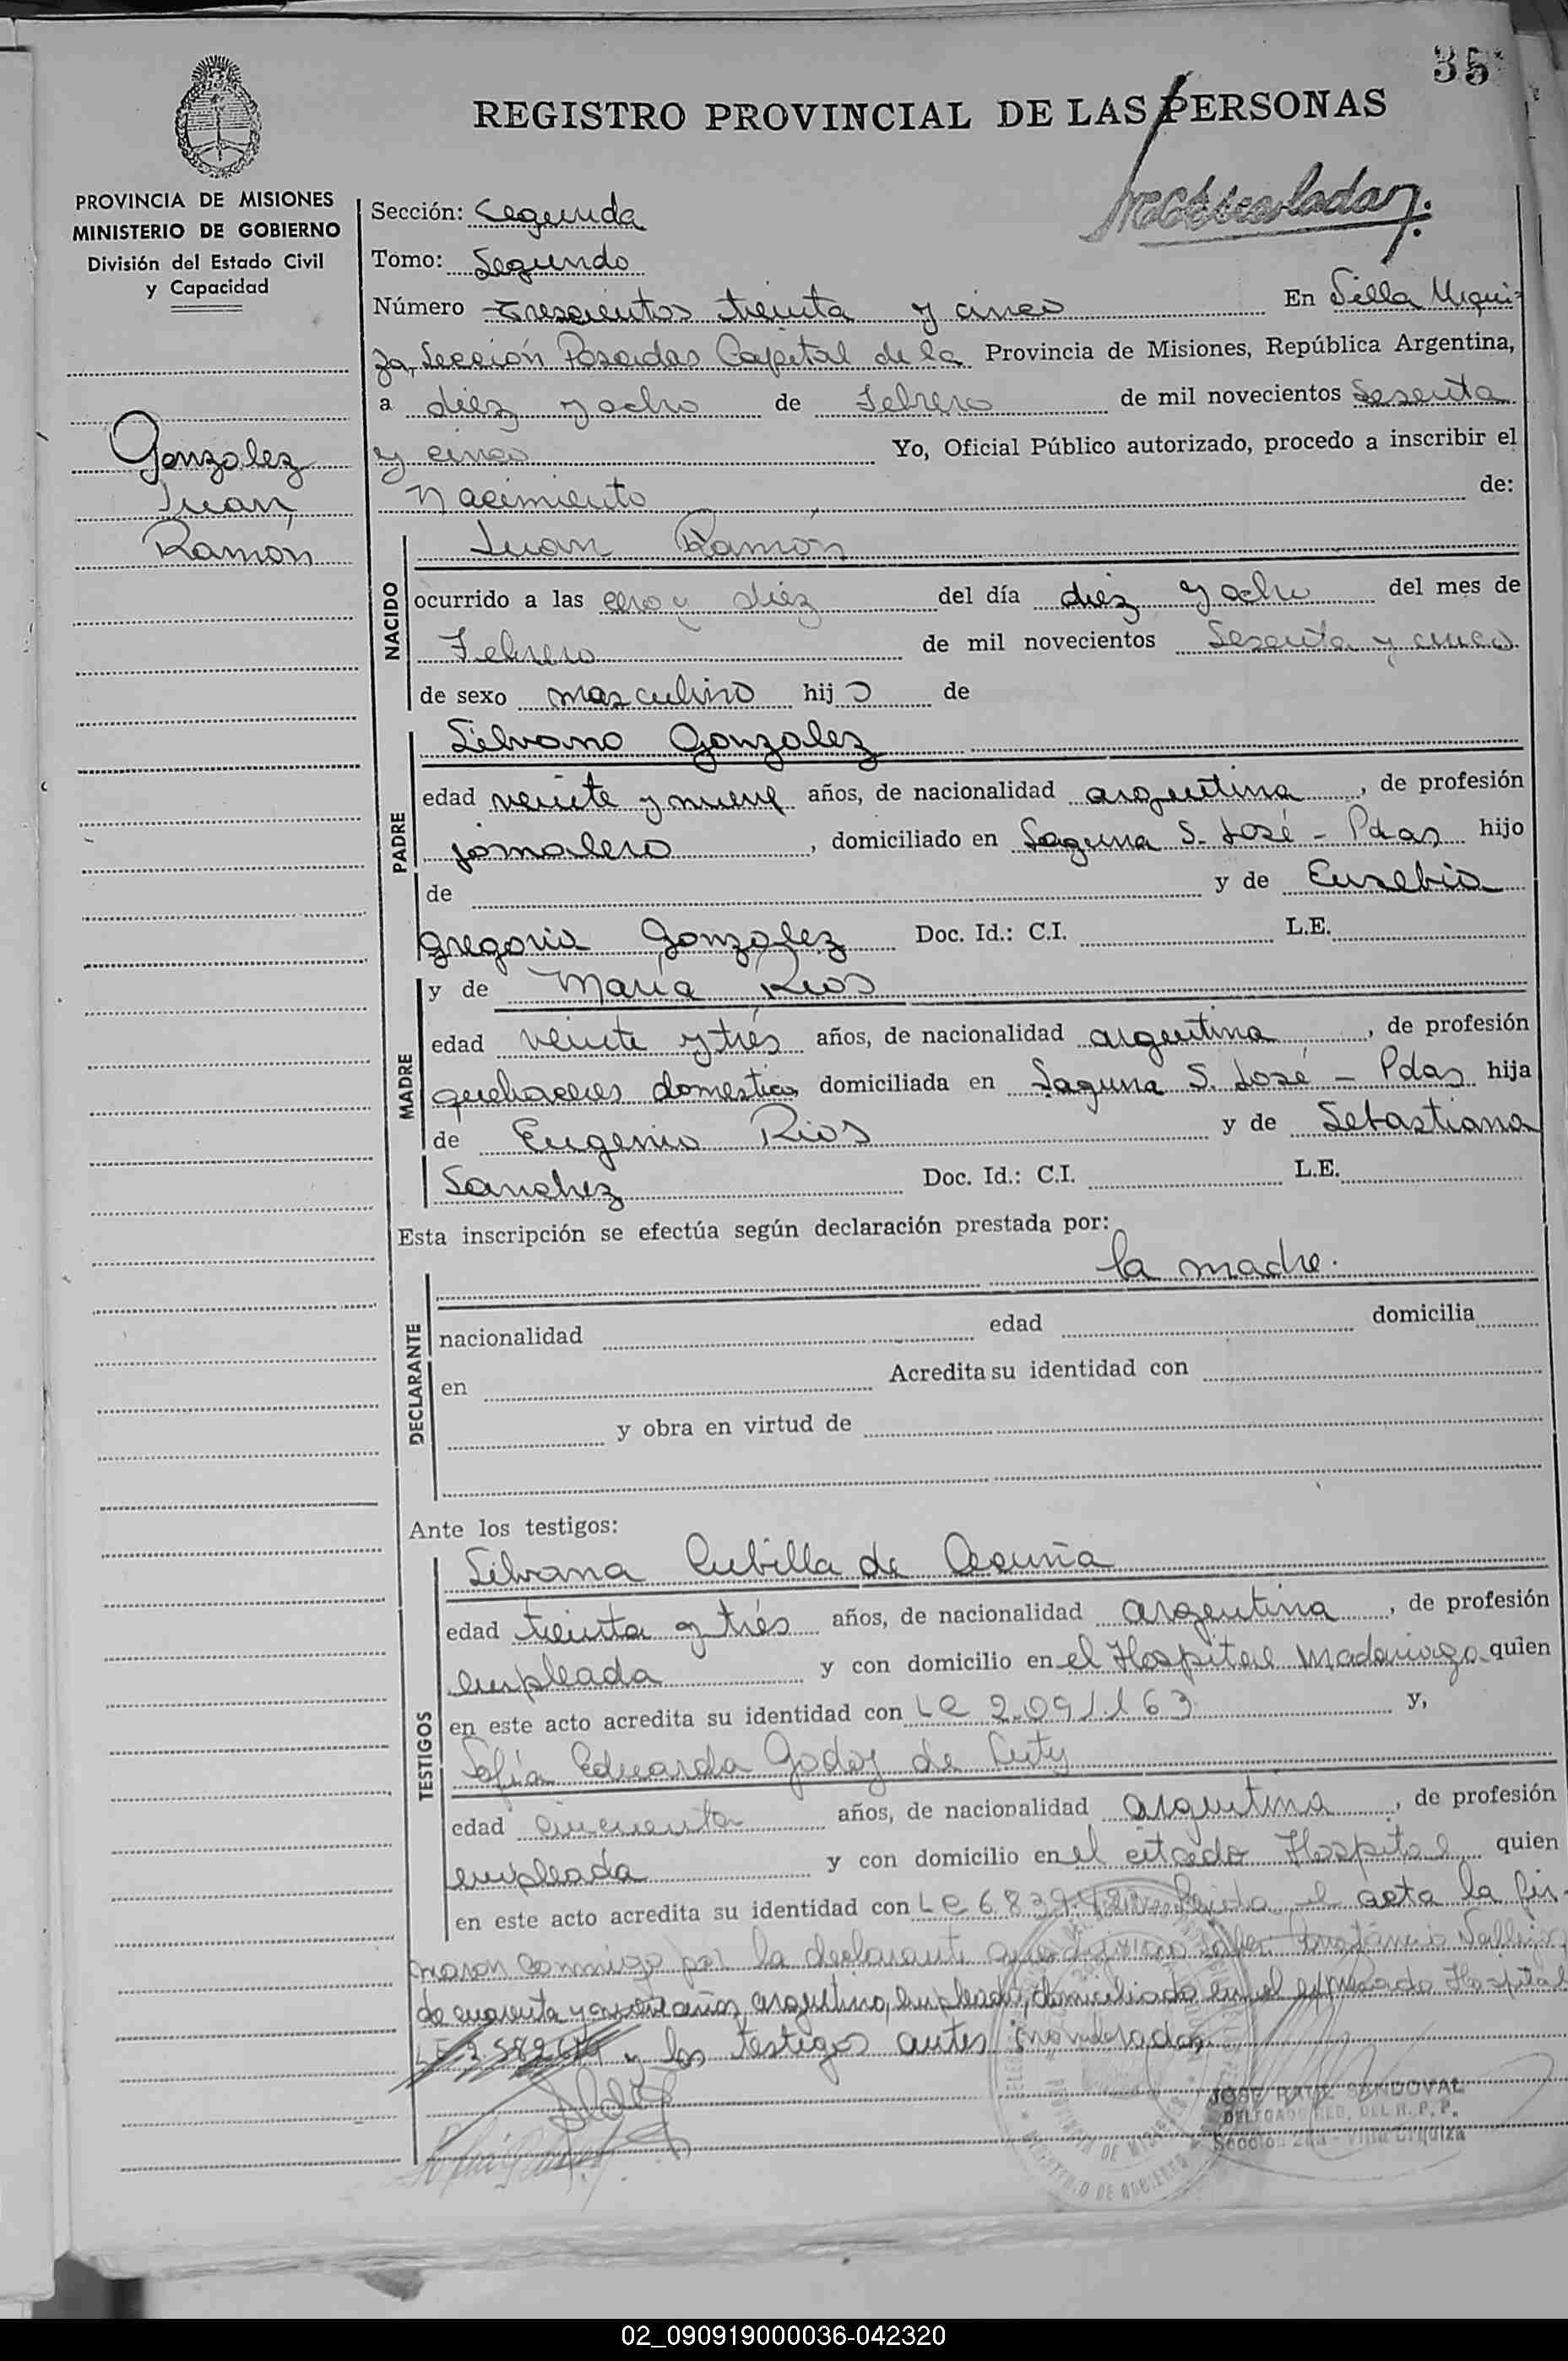 35
REGISTRO PROVINCIAL DE LAS PERSONAS
PROVINCIA DE MISIONES
MINISTERIO DE GOBIERNO
División del Estado Civil
y Capacidad
Gonzalez
Juan
Ramón
Sección: Segunda
Tomo: Segundo
Número Trescientos treinta y cinco En Villa Urqui-
za, Sección Posadas Capital de la Provincia de Misiones, República Argentina,
a diez y ocho de Febrero de mil novecientos Sesenta
y cinco Yo, Oficial Público autorizado, procedo a inscribir el
Nacimiento de:
NACIDO
Juan Ramón
ocurrido a las cero y diez del día diez y ocho del mes de
Febrero de mil novecientos Sesenta y cinco
de sexo masculino hijo de
PADRE
Silvano Gonzalez
edad veinte y nueve años, de nacionalidad argentina, de profesión
jornalero, domiciliado en Laguna S. José - Pdas hijo
de y de Eusebia
Gregoria Gonzalez Doc. Id.: C.I. L.E.
MADRE
y de María Rios
edad veinte y trés años, de nacionalidad argentina, de profesión
quehaceres domestico domiciliada en Laguna S. José - Pdas hija
de Eugenio Rios y de Sebastiana
Sanchez Doc. Id.: C.I. L.E.
Esta inscripción se efectúa según declaración prestada por:
DECLARANTE
la madre.
nacionalidad edad domicilia
en Acredita su identidad con
y obra en virtud de
Ante los testigos:
TESTIGOS
Silvana Cubilla de Acuña
edad treinta y trés años, de nacionalidad argentina, de profesión
empleada y con domicilio en el Hospital Madariaga quien
en este acto acredita su identidad con LC 2.091.163 y,
Sofía Eduarda Godoy de
edad cincuenta años, de nacionalidad argentina, de profesión
empleada y con domicilio en el citado Hospital quien
en este acto acredita su identidad con LC Leida el acta la fir-
maron conmigo por la declarante que
de cuarenta y años, argentino, empleado, domiciliado en el expresado Hospital
y los testigos antes nombrados.
JOSE RAUL SANDOVAL
DELEGADO DEL R. P. P.
Sección 2da - Villa Urquiza
02_090919000036-042320